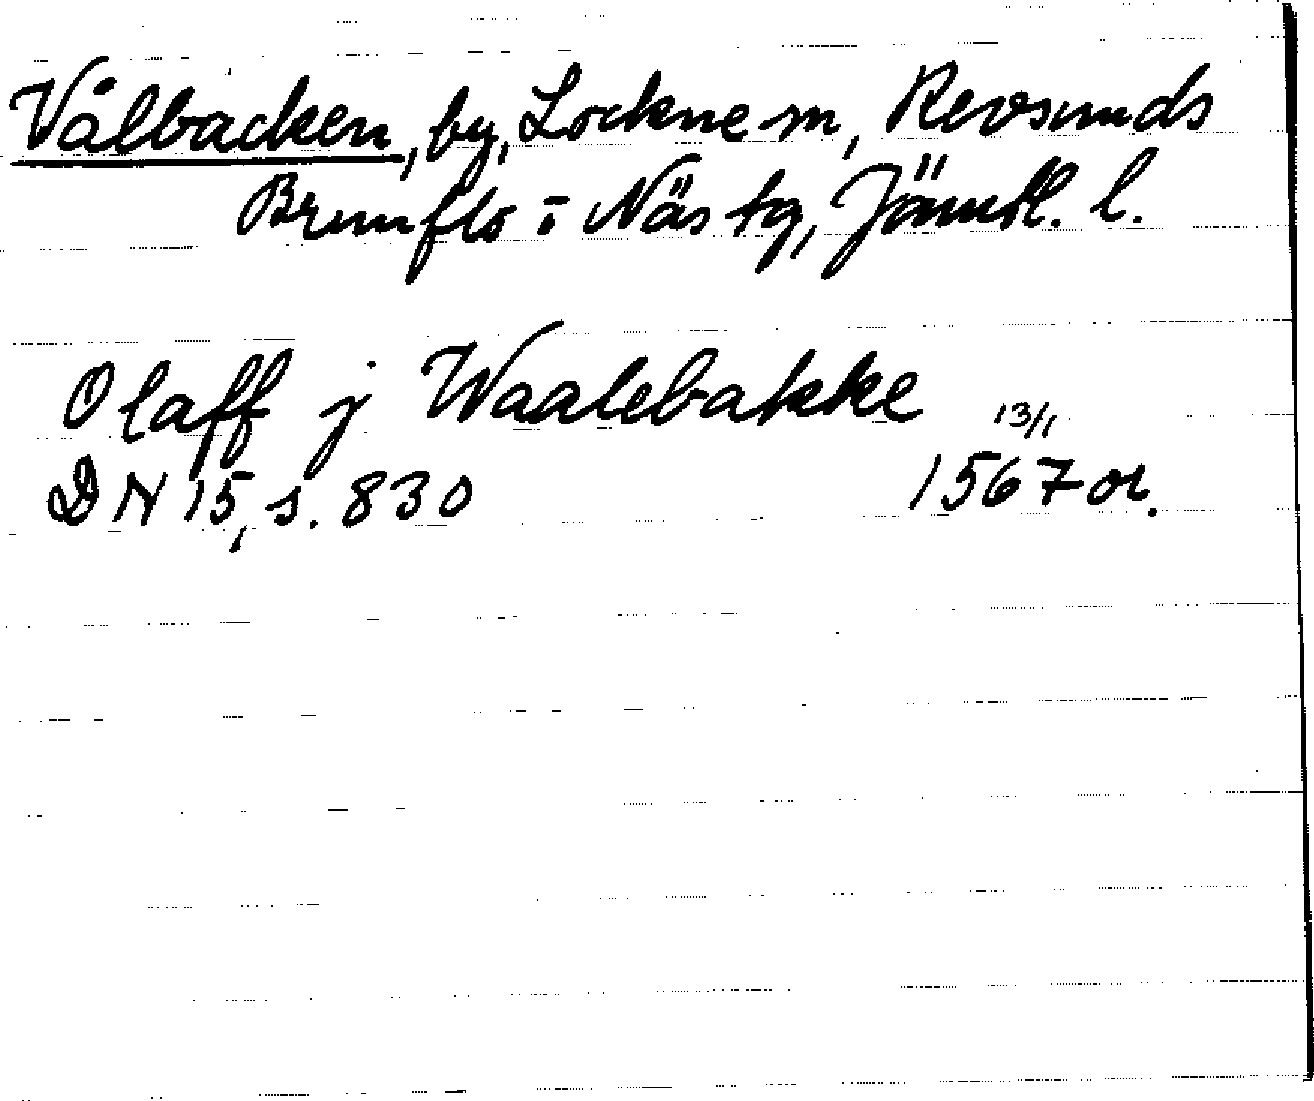 Vålbacken, by, Lockne sn, Revsunds
Brunflo i Näs tg, Jämtl. l.
Olaff j Waalebakke 13/1
DN 15, s. 830 1567 or.